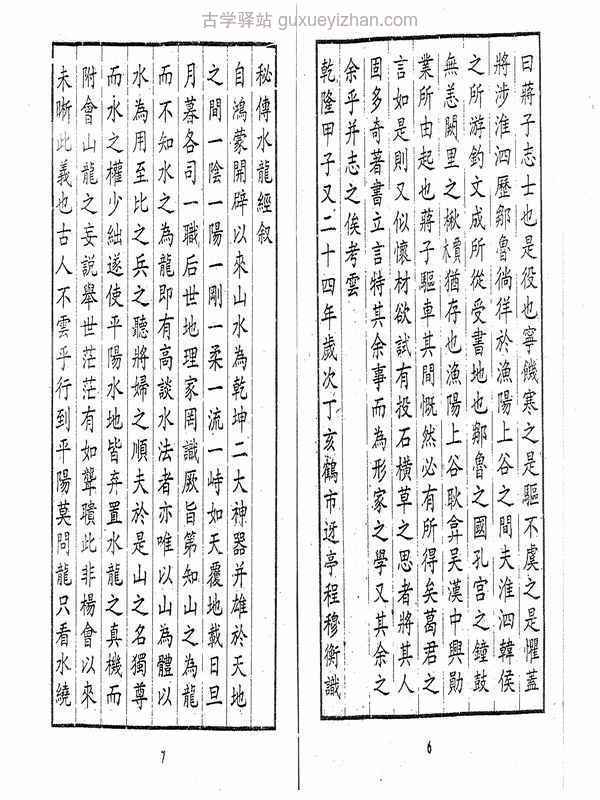 古学驿站 guxueyizhan.com
曰蔣子志士也是役也寧饑寒之是驅不虞之是懼蓋
將涉淮泗歷鄒魯徜徉於漁陽上谷之間夫淮泗韓侯
之所游釣文成所從受書地也鄒魯之國孔宮之鐘鼓
無恙闕里之楸檟猶存也漁陽上谷耿弇吴漢中興勛
業所由起也蔣子驅車其間慨然必有所得矣葛君之
言如是則又似懷材欲試有投石橫草之思者將其人
固多奇著書立言特其余事而為形家之學又其余之
余乎并志之俟考雲
乾隆甲子又二十四年歲次丁亥鶴市迓亭程穆衡識
6
秘傳水龍經叙
自鴻蒙開辟以來山水為乾坤二大神器并雄於天地
之間一陰一陽一剛一柔一流一峙如天覆地載日旦
月暮各司一職后世地理家罔識厥旨第知山之為龍
而不知水之為龍即有高談水法者亦唯以山為體以
水為用至比之兵之聽將婦之順夫於是山之名獨尊
而水之權少絀遂使平陽水地皆弃置水龍之真機而
附會山龍之妄說舉世茫茫有如聾瞶此非楊會以來
未晰此義也古人不雲乎行到平陽莫問龍只看水繞
7